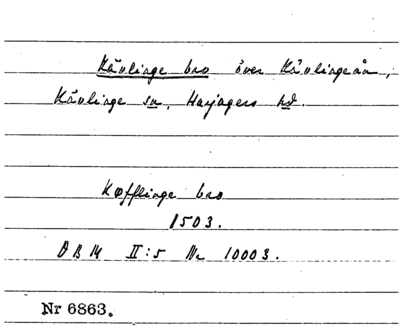 Kävlinge bro över Kävlingeån,
Kävlinge sn, Harjagers hd.
Køfflinge bro
1503.
ÆDB II:5 Nr 10003.
Nr 6863.